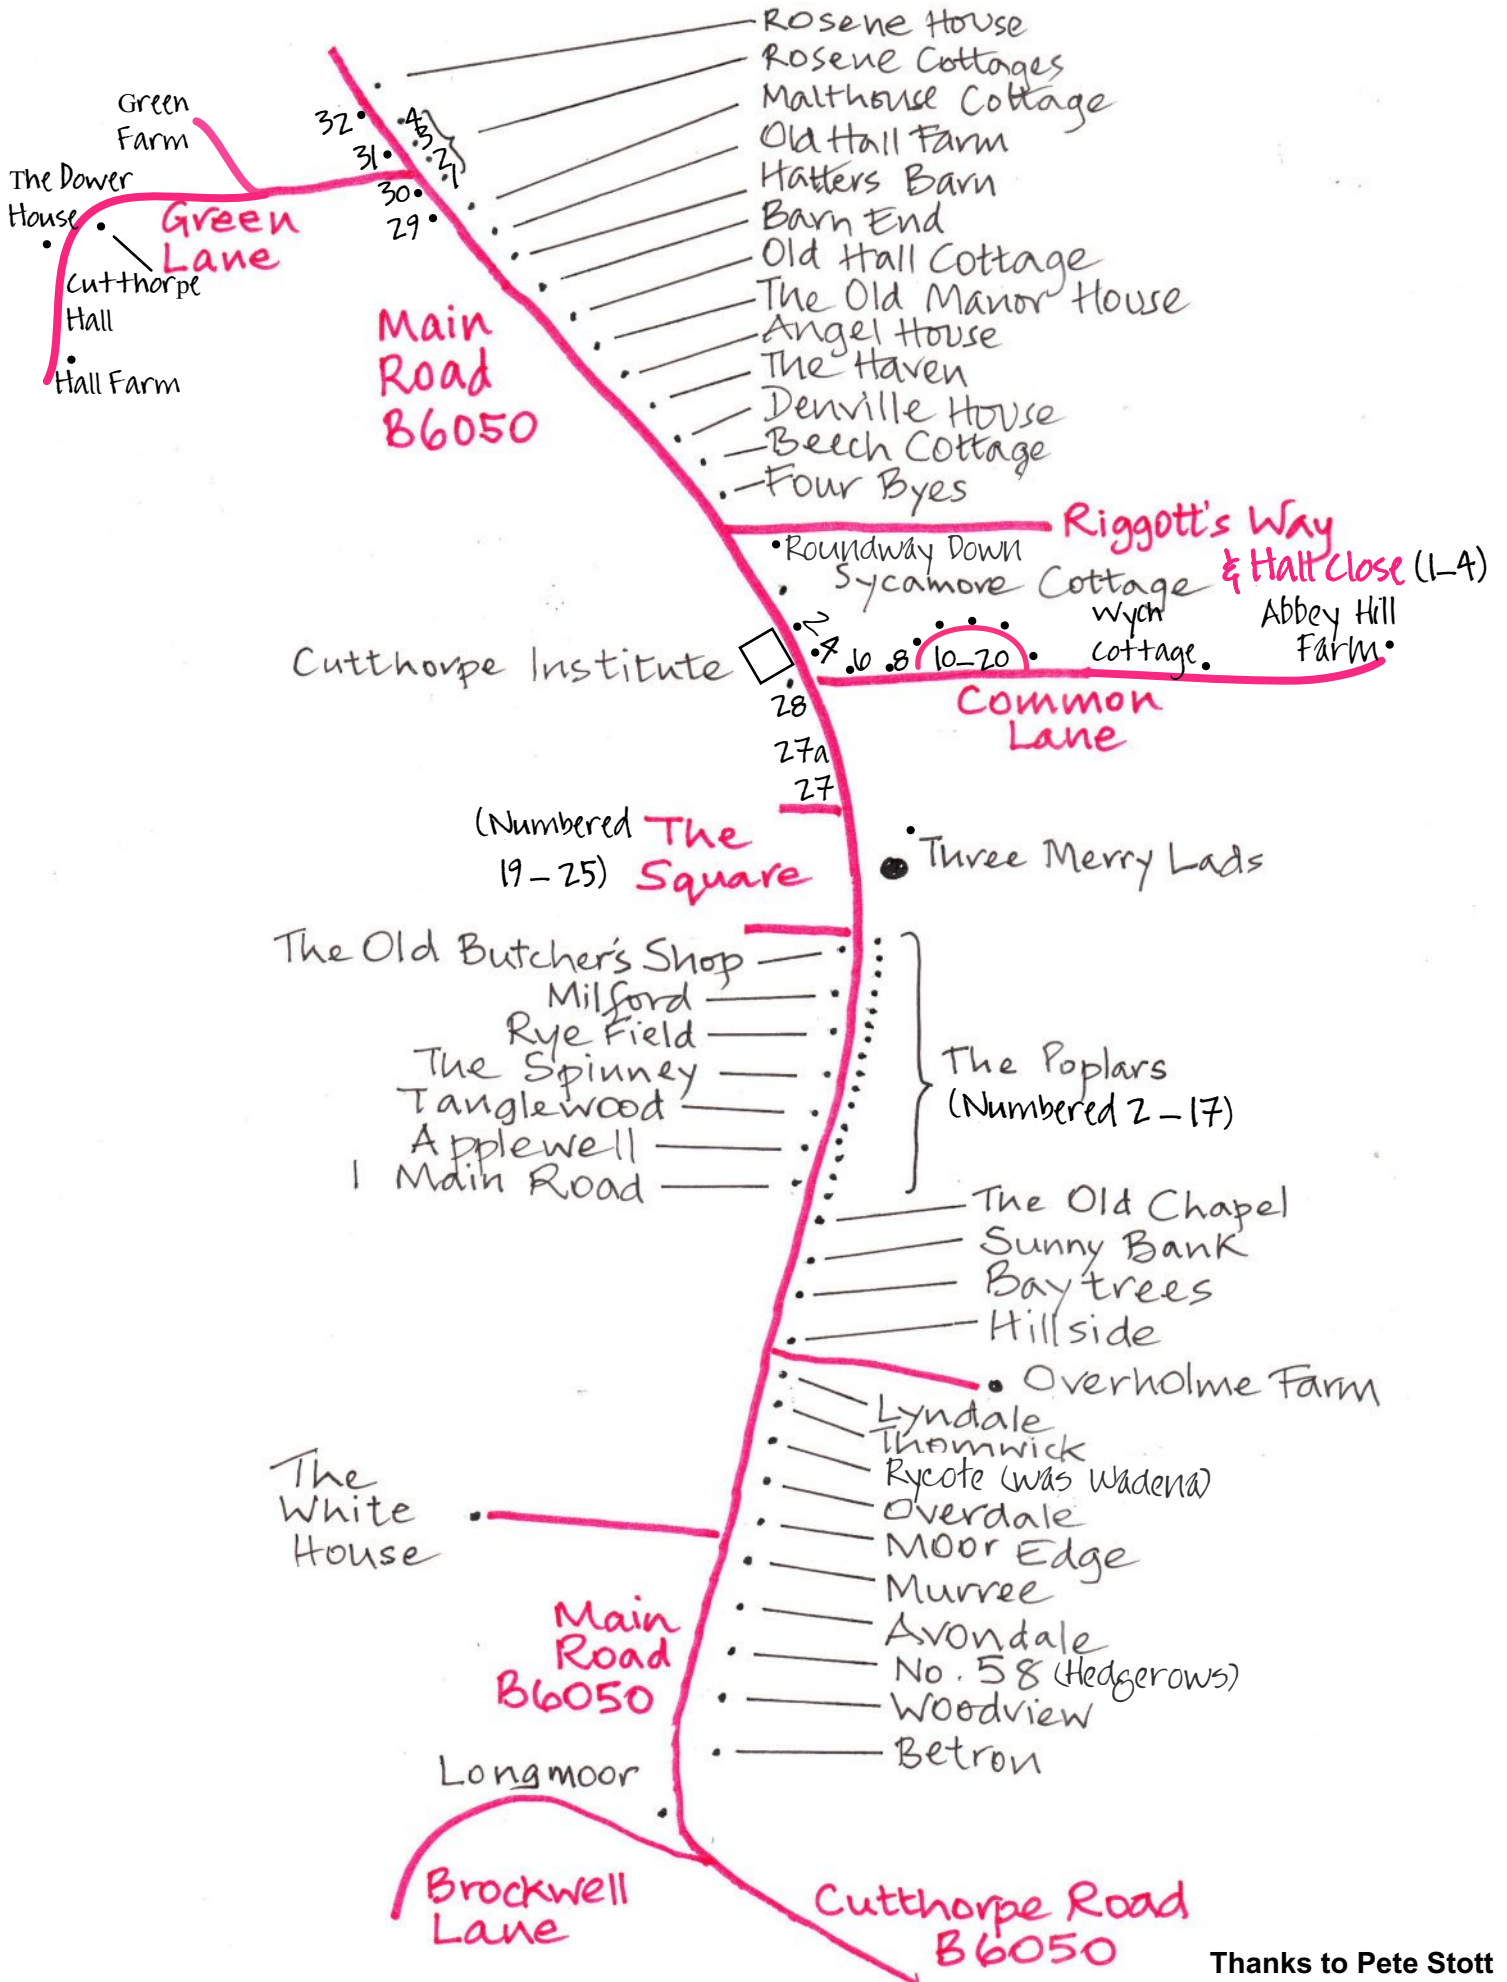 Rosene House
Rosene Cottages
Malthouse Cottage
Old Hall Farm
Hatters Barn
Barn End
Old Hall Cottage
The Old Manor House
Angel House
The Haven
Denville House
Beech Cottage
Four Byes
Green
Farm
32
4
3
2
1
31
30
29
The Dower
House
Green
Lane
Cutthorpe
Hall
Hall Farm
Main
Road
B6050
Riggott's Way
& Hall Close (1-4)
Roundway Down
Sycamore Cottage
2
4
6
8
10-20
Wych
cottage
Abbey Hill
Farm
Cutthorpe Institute
Common
Lane
28
27a
27
(Numbered
19-25)
The
Square
Three Merry Lads
The Old Butcher's Shop
Milford
Rye Field
The Spinney
Tanglewood
Applewell
1 Main Road
The Poplars
(Numbered 2-17)
The Old Chapel
Sunny Bank
Baytrees
Hillside
Overholme Farm
Lyndale
Thornwick
Rycote (was Wadena)
Overdale
Moor Edge
Murree
Avondale
No. 58 (Hedgerows)
Woodview
Betron
The
White
House
Main
Road
B6050
Longmoor
Brockwell
Lane
Cutthorpe Road
B6050
Thanks to Pete Stott